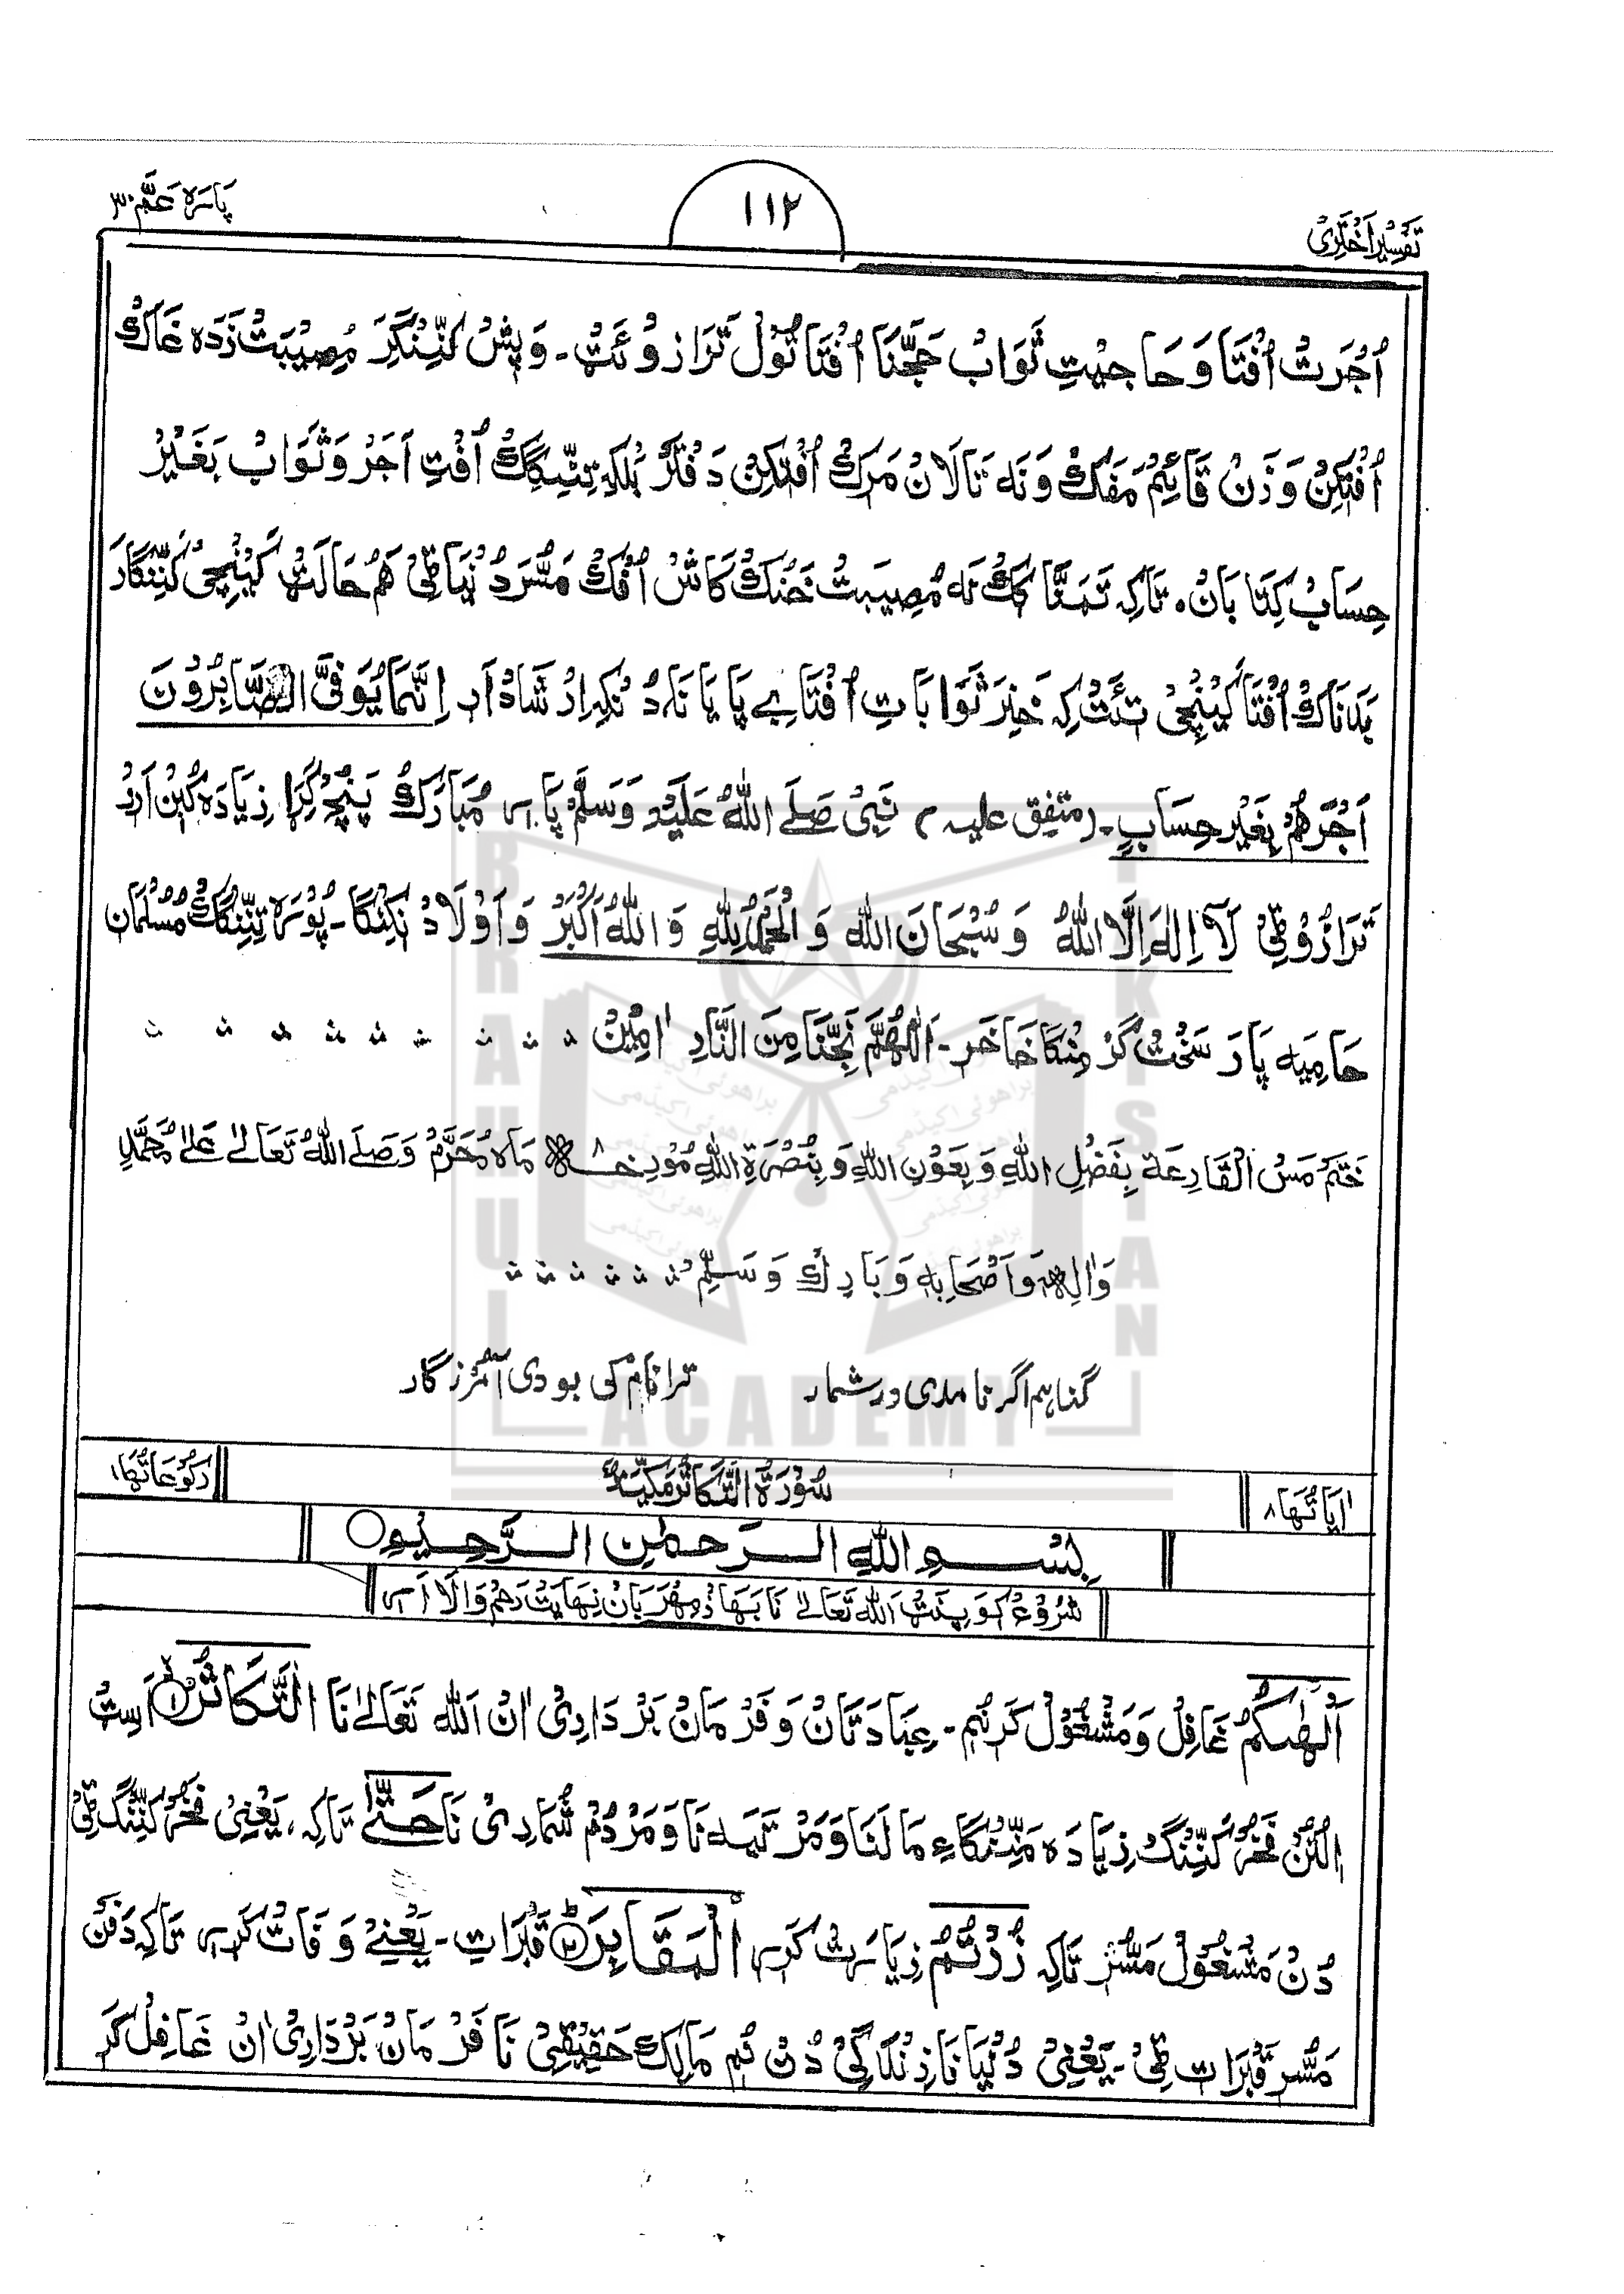 تَفسِیرِ اَختَرِی
۱۱۲
پَارَہ عَمَّ ۳۰
اُجرَت اُفتَا وَ حَاجِیتِ ثَوَاب حَجَّنَا اُفتَا تُول تَرَازُو ئَٹ۔ وَ پِیش کَنِّنگِرَ مُصِیبَت زَدَہ غَاک
اُفتِکِن وَزَن قَائِم مَفَک وَ نَہ تَالَان مَرَک اُفتِکِن دَفتَر بَلکِہ تِنِّنگِک اُفتِ اَجَر وَ ثَوَاب بَغَیر
حِسَاب کِتَابَان۔ تَاکِہ تَمَنَّا کَک نَہ مُصِیبَت خَنُک کَاش اُفک مَسُّر دُنیَا ٹِی ھَم حَالَت کَینچِی کَنِّنگَارَ
بَدَنَاک اُفتَا کَینچِی تَئَٹ کِہ خَیر ثَوَابَاتِ اُفتَا بے پَایَانَہ دُنکِہ اِرشَاد اَر اِنَّمَا یُوَفَّی الصَّابِرُونَ
اَجرَھُم بِغَیرِ حِسَابٍ۔ (متفق علیہ) نَبِی صَلَے اللّٰہُ عَلَیہِ وَسَلَّم پَارے مُبَارَک پَنچ گِرَا زِیَادَہ کُبِن اَرٖ
تَرَازُو ٹِی لَآ اِلٰہَ اِلَّا اللّٰہُ وَ سُبحَانَ اللّٰہ وَ الحَمدُ لِلّٰہِ وَ اللّٰہُ اَکبَر وَ اَولَاد نِکِنگَا۔ پُورَہ تِنِّنگَک مُسلمَان
حَامِیَہ پَارَ سَخت گَرمِنگَا خَاخَر۔ اَللّٰھُمَّ نَجِّنَا مِنَ النَّارِ اٰمِین
خَتَم مَس القَارِعَۃ بِفَضلِ اللّٰہِ وَ بِعَونِ اللّٰہِ وَ بِنُصرَۃِ اللّٰہِ مُؤرِخہ ۸ مَاہ مُحَرَّم وَ صَلَے اللّٰہُ تَعَالٰے عَلٰے مُحَمَّدٍ
وَاٰلِہٖ وَاَصحَابِہٖ وَ بَارِک وَ سَلِّم
گناہم اگر نامدی در شمار ترا نام کی بودی آمرزگار
اٰیَاتُھَا ۸ سُورَۃُ التَّکَاثُر مَکِیَّۃ رَکُوعَاتُھَا ۱
بِسمِ اللّٰہِ الرَّحمٰنِ الرَّحِیمِ
شُرُوع کَو پِنَٹ اَللّٰہ تَعَالٰے نَا بَھَاز مِھرَبَان نِہَایَت رَحم وَالَا اَرے
اَلھٰىکُم غَافِل وَ مَشغُول کَرنُم۔ عِبَادَتَان وَ فَرمَان بَردَارِی اٰن اَللّٰہ تَعَالٰے نَا التَّکَاثُرُ ۱ اَسِٹ
اِلُّن فَخُر کَنِّنگ زِیَادَہ مَنِّنگَاءِ مَالنَا وَ مَرتَبَہ نَا وَ مَردُم شُمَارِی نَا حَتّٰی تَاکِہ، یَعنِی فَخُر کَنِّنگ ٹِی
دُن مَشغُول مَسُّر تَاکِہ زُرتُم زِیَارَت کَرے المَقَابِرَ ۲ قَبرَاتِ۔ یَعنِے وَفَات کَرے تَاکِہ دَفَن
مَسُّر قَبرَات ٹِی۔ یَعنِی دُنیَا نَا زِندَگِی دُن نُم مَالِک حَقِیقِی نَا فَرمَان بَردَارِی اٰن غَافِل کَر
BRAHUI ACADEMY PAKISTAN